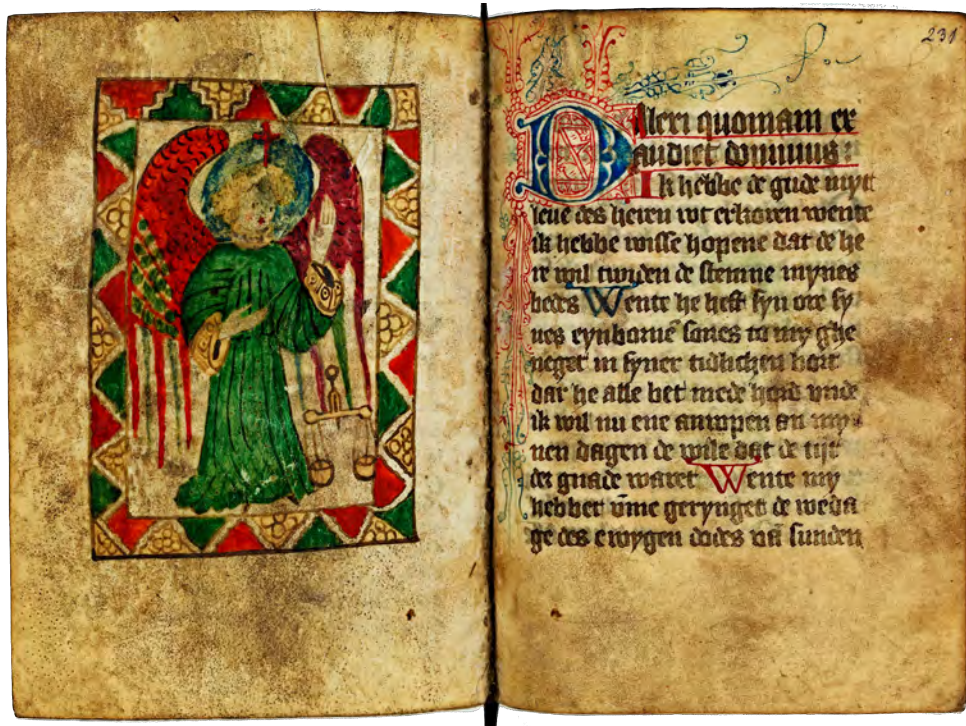 231
Dileri quoniam ex
audiet dominus
Ik hebbe de gude mytt
leue des heren vt erkoren wente
ik hebbe wisse hopene dat de he
re wil twiden de stemne mynes
bedes Wente he heft syn ore sy
nes eynborne sones to my ghe
neget in syner tidlichen bort
dar he alle bet mede hord vnde
ik wil nu ene anropen an my
nen dagen de wile dat de tijt
der gnade waret Wente my
hebbet vm̄e gerynget de weda
ge des ewygen dodes vn̄ sunden